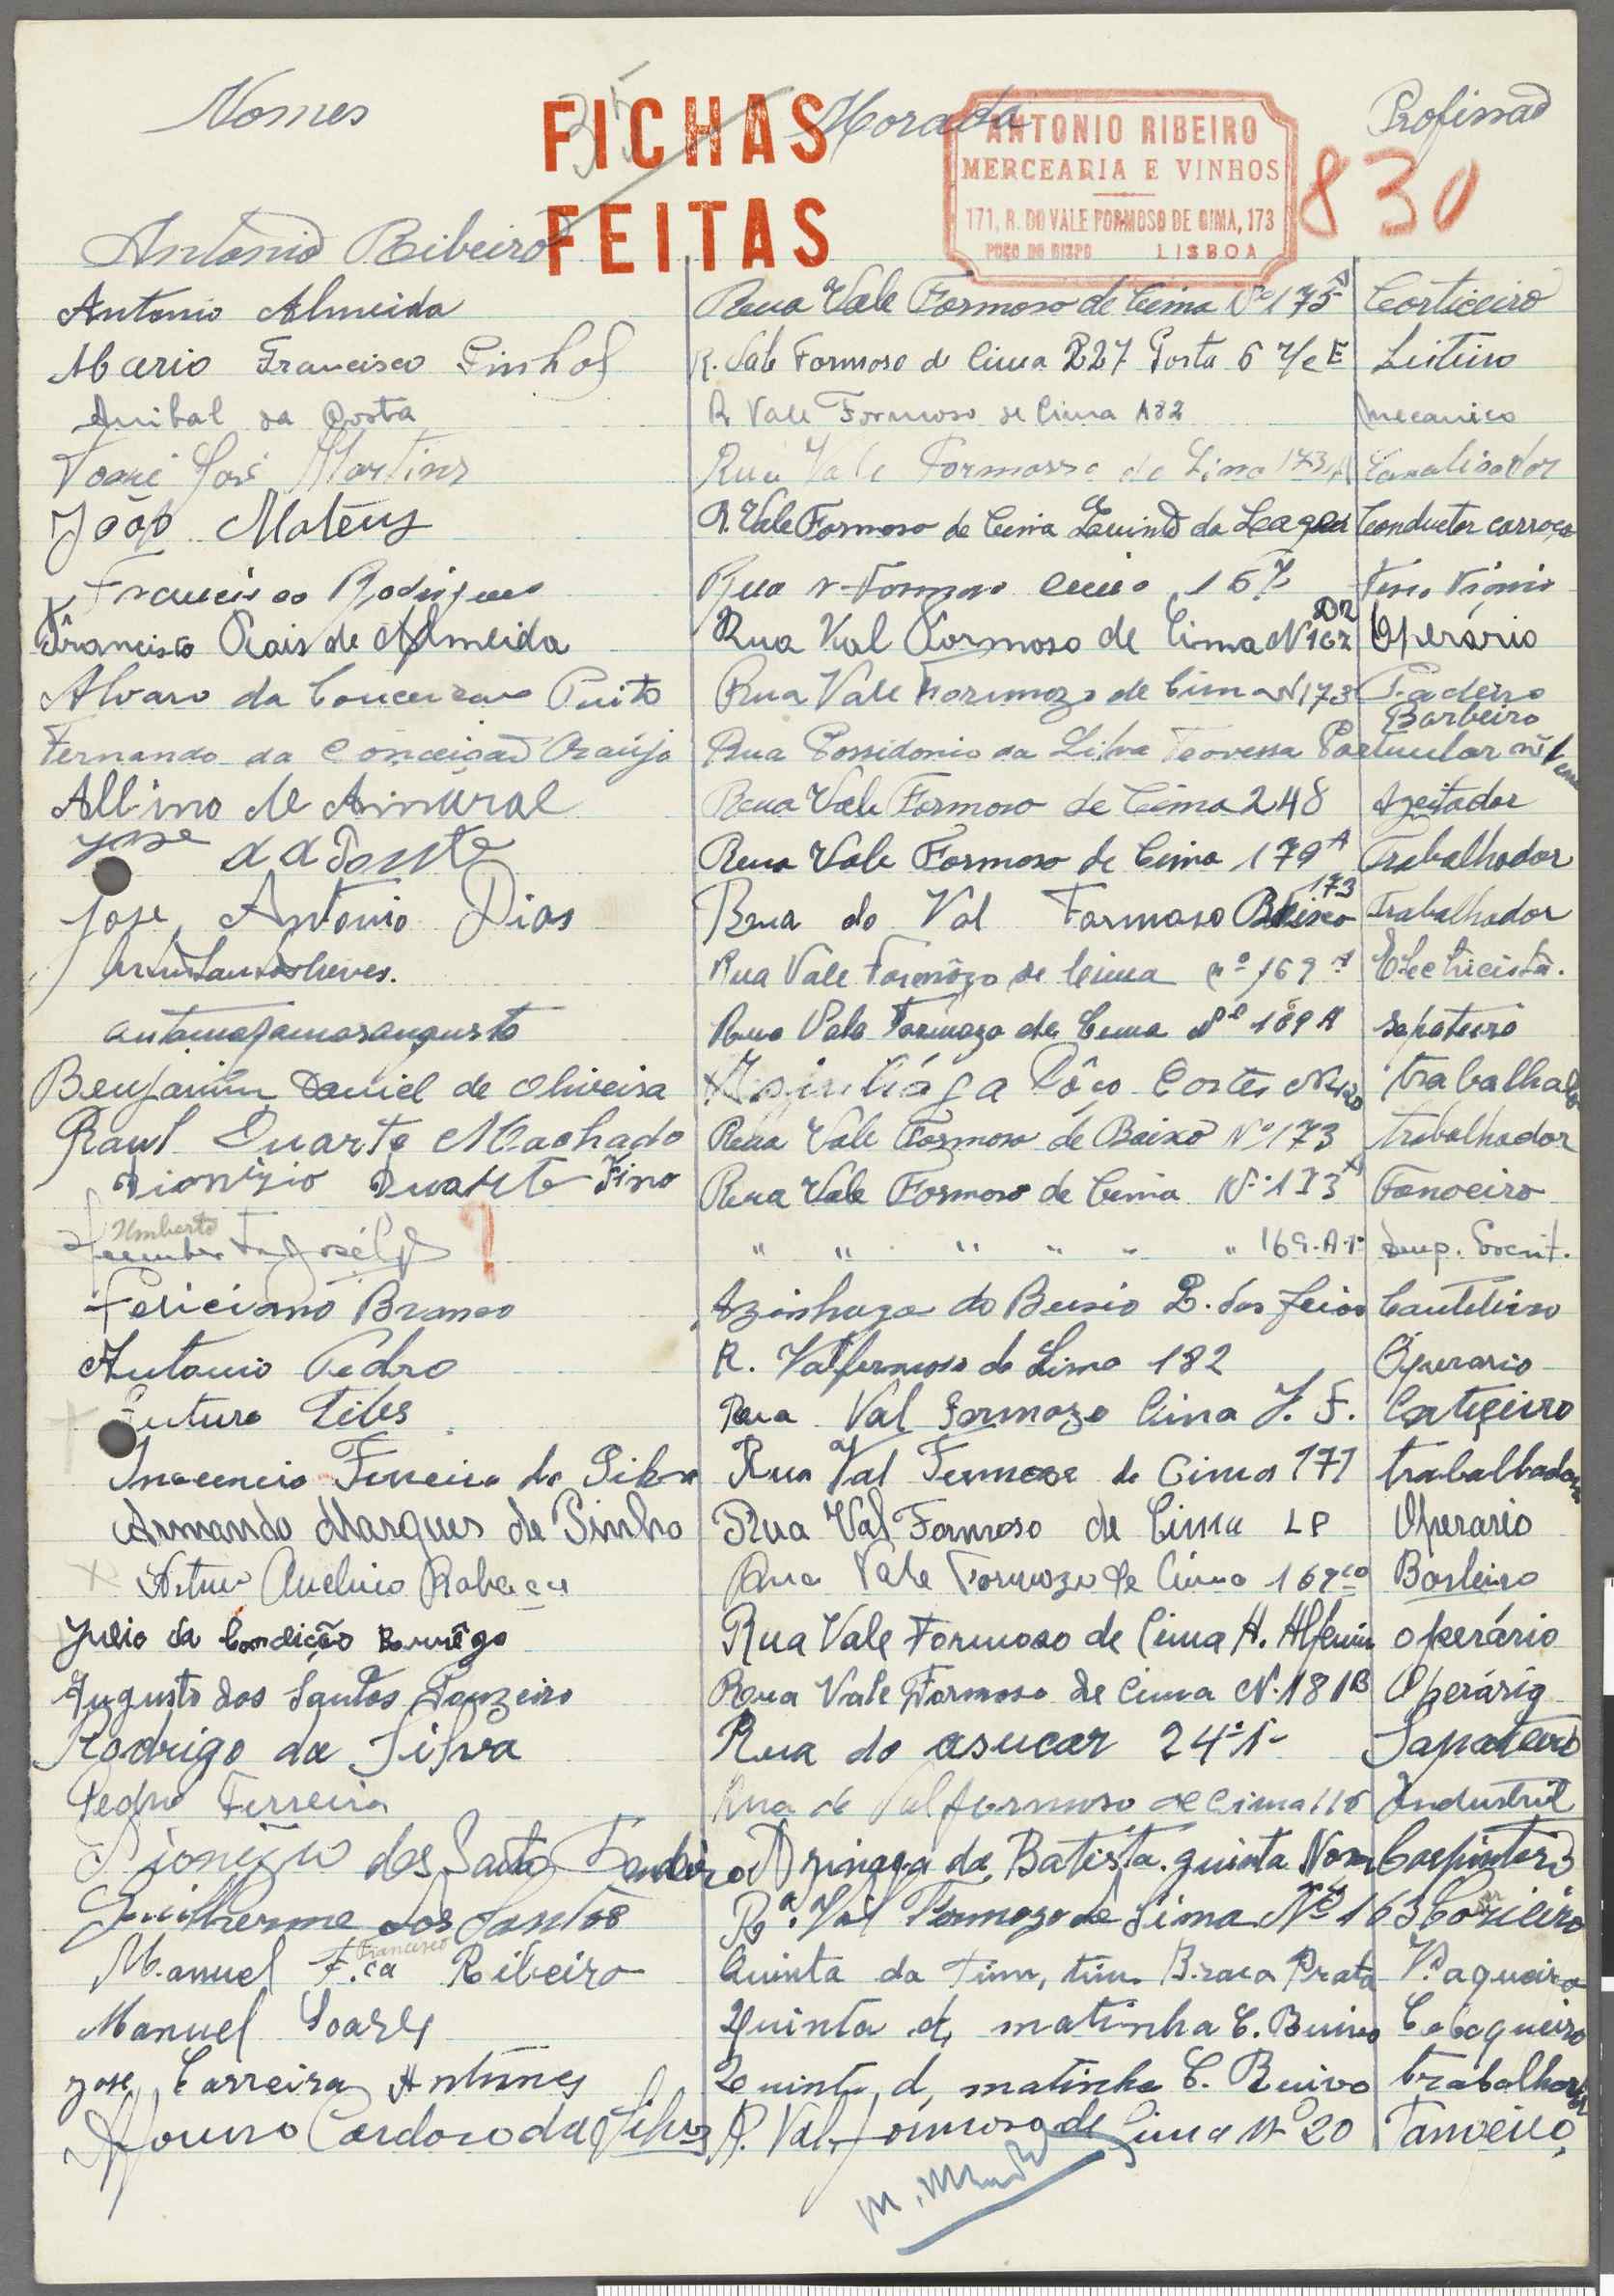 Nomes Morada Profissão
FICHAS
FEITAS
35
ANTONIO RIBEIRO
MERCEARIA E VINHOS
171, R. DO VALE FORMOSO DE CIMA, 173
POÇO DO BISPO LISBOA
830
Antonio Ribeiro
Antonio Almeida Rua Vale Formoso de Cima Nº 175 A Corticeiro
Mario Francisco R. Vale Formoso de Cima 227 Porta 6 r/c E Leiteiro
Anibal da Costa R Vale Formoso de Cima 182 mecanico
José Martins Rua Vale Formosso de Sima 173 A Canalisador
João Mateus R. Vale Formoso de Cima Conductor carroça
Francisco Rodrigues Rua
Francisco Pais de Almeida Rua Val Formoso de Cima Nº 162 Operário
Alvaro da Pinto Rua Vale Formozo de Cima N 173 Padeiro
Fernando da Conceição Araújo Rua Possidonio da Silva Travessa Particular nº 1 Barbeiro
Albino de Amaral Rua Vale Formoso de Cima 248 Azeitador
Jose da Ponte Rua Vale Formoso de Cima 179 A Trabalhador
Jose Antonio Dias Rua do Val Formoso Baixo 173 Trabalhador
Rua Vale Formôzo de Cima nº 169 A Electricista.
Rua Vale Formozo de Cima Nº 189 A sapateiro
Benjamim Daniel de Oliveira Pôço Cortes trabalhador
Raul Duarte Machado Rua Vale Formoso de Baixo Nº 173 trabalhador
Dionizio Duarte Fino Rua Vale Formoso de Cima Nº 173 A Tanoeiro
Umberto José " " " " " " 169-A-1º Emp. Escrit.
?
Feliciano Branco Azinhaga do Cauteleiro
Antonio Pedro R. Valformoso de Sima 182 Operario
Teles Rua Val Formozo Cima J. F. Corticeiro
Inocencio Ferreira da Silva Rua Val Formoso de Cima 171 trabalhador
Armando Marques de Pinho Rua Val Formoso de Cima L P Operario
Artur Avelino Rua Vale Formozo de Cima 169
Julio da Condição Borrêgo Rua Vale Formoso de Cima operário
Augusto dos Santos Rua Vale Formoso de Cima N. 181 B Operário
Rodrigo da Silva Rua do asucar 24-1º Sapateiro
Pedro Ferreira Rua de Valformoso de Cima 116 Industrial
Dionizio dos Santos Azinaga da Batista quinta Carpinteiro
Guilherme dos Santos Rª. Val Formozo de Sima Nº 163
Manuel F.ca Francisco Ribeiro Quinta da Braca Prata Vaqueiro
Manuel Soares Quinta d, matinha C. Ruivo
Jose Carreira Antunes Quinta, d, matinha C. Ruivo trabalhador
Afonso Cardoso da Silva R. Val formoso de Cima Nº 20 Tanoeiro